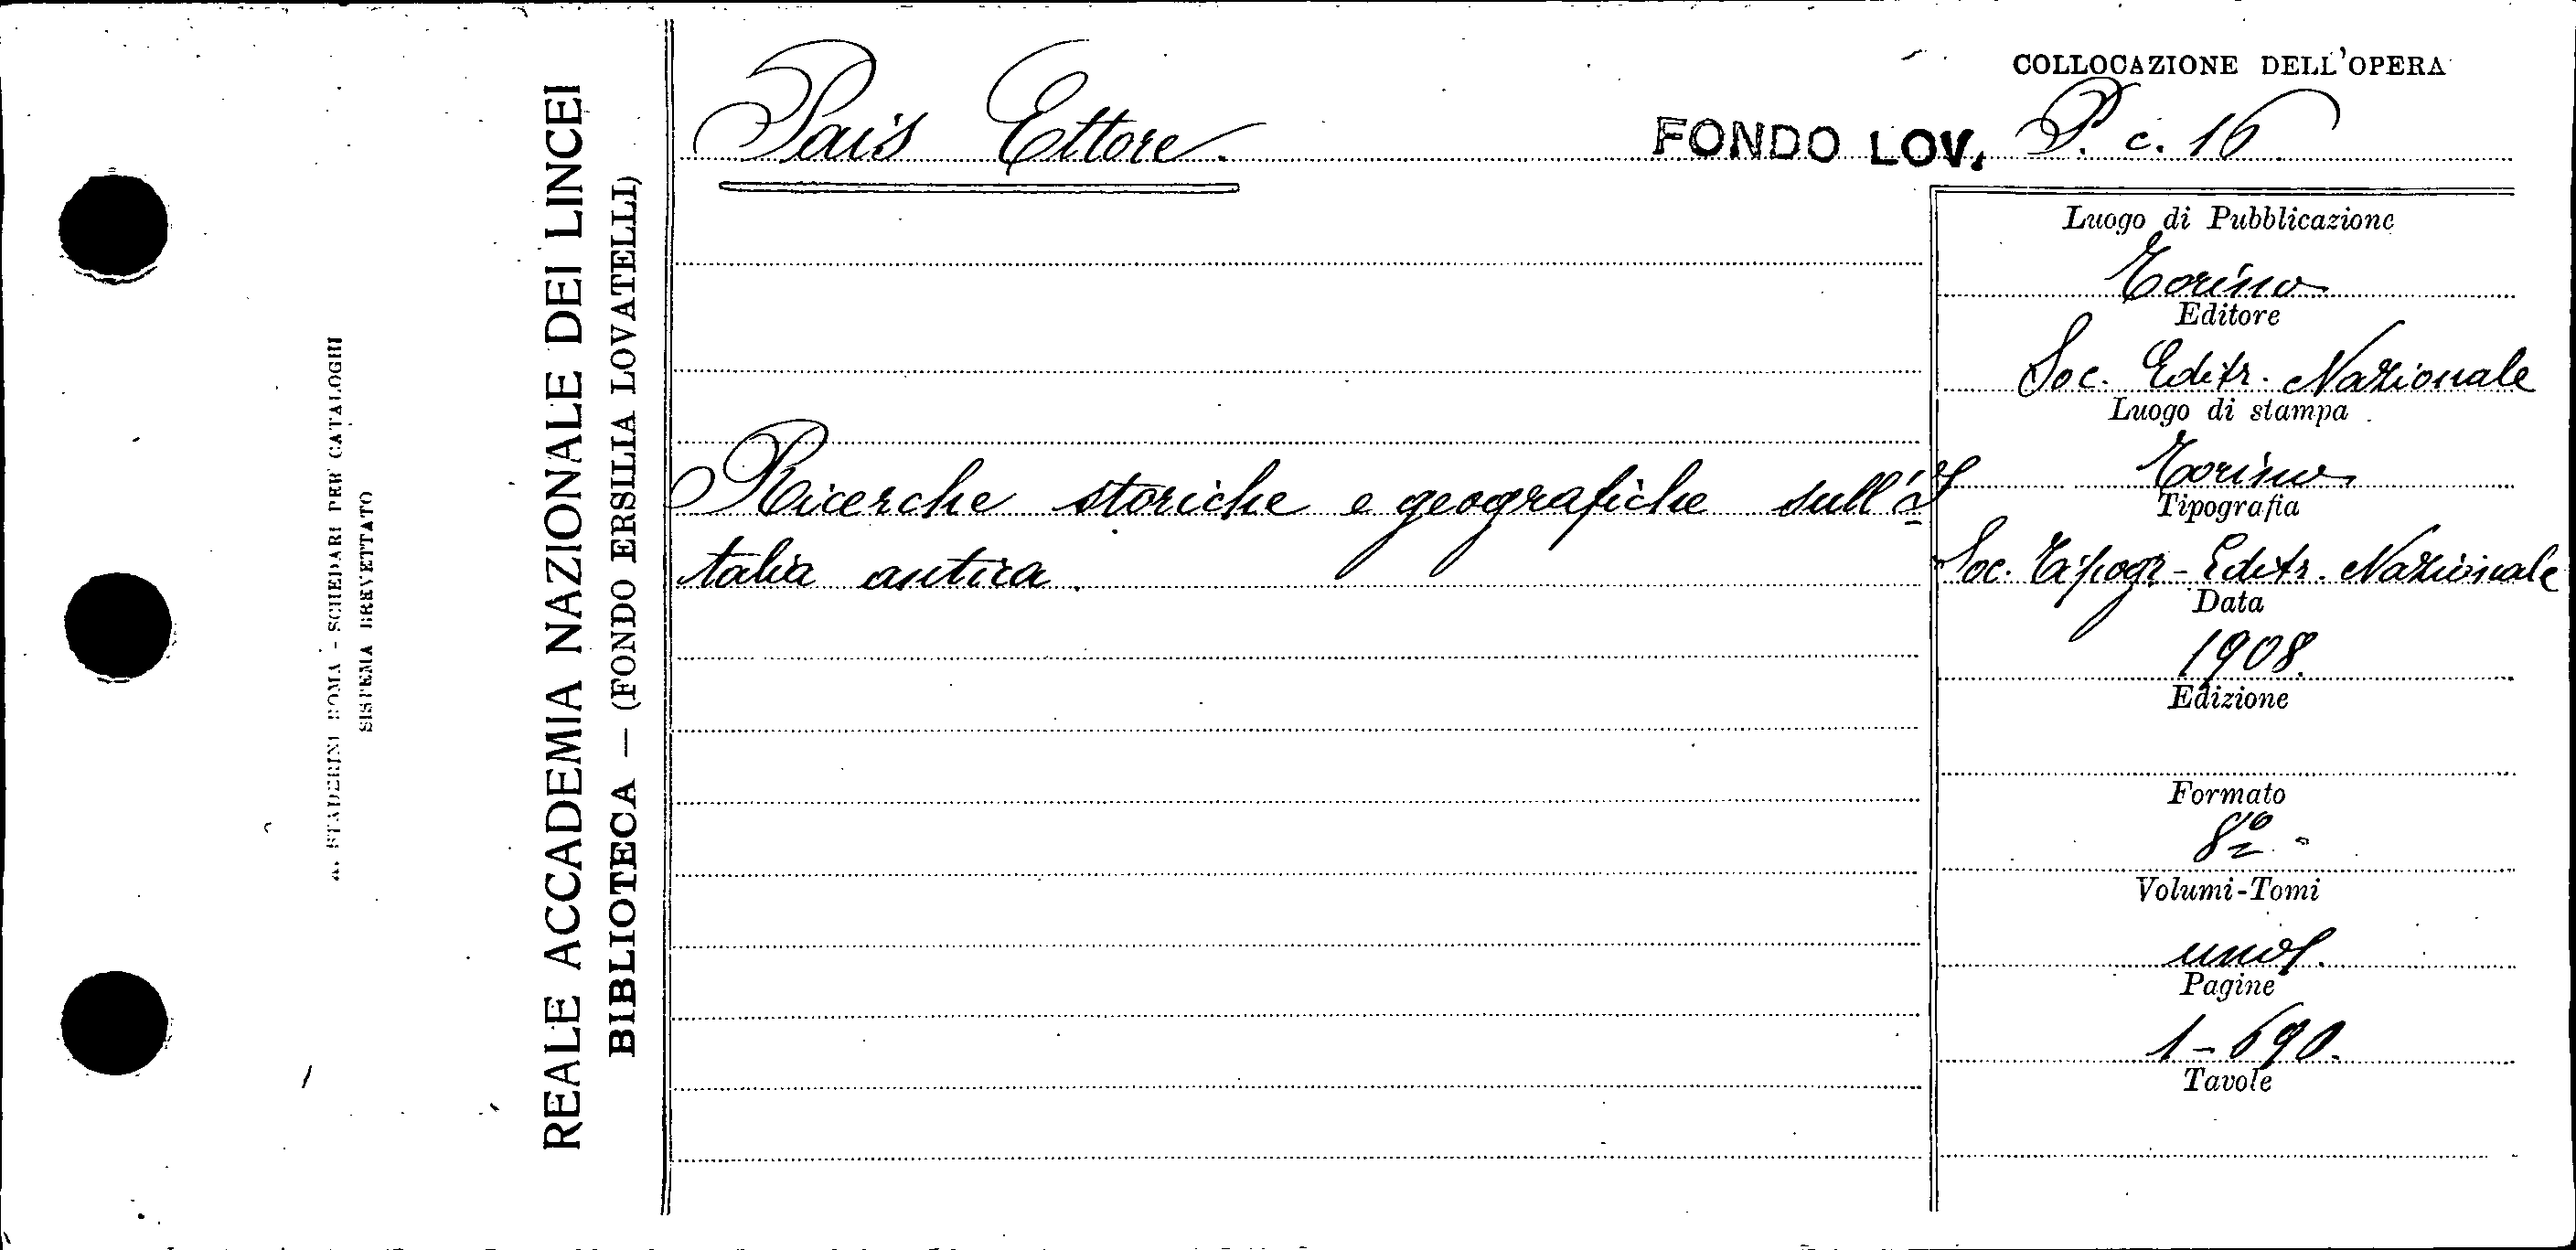 A. STADERINI ROMA - SCHEDARI PER CATALOGHI
SISTEMA BREVETTATO
REALE ACCADEMIA NAZIONALE DEI LINCEI
BIBLIOTECA — (FONDO ERSILIA LOVATELLI)
COLLOCAZIONE DELL'OPERA
Pais Ettore.
FONDO LOV. P. c. 16
Ricerche storiche e geografiche sull'I
talia antica.
Luogo di Pubblicazione
Torino
Editore
Soc. Editr. Nazionale
Luogo di stampa
Torino
Tipografia
Soc. Tipogr-Editr. Nazionale
Data
1908.
Edizione
Formato
8º
Volumi-Tomi
uno.
Pagine
1-690.
Tavole